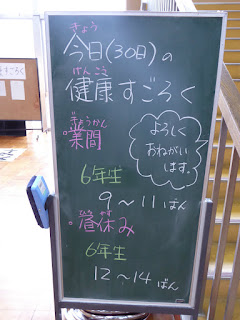 きょう
今日(30日)の
けんこう
健康すごろく
ぎょうかん
◦業間
よろしく
おねがい
します。
6年生
9〜11ばん
ひるやす
◦昼休み
6年生
12〜14ばん